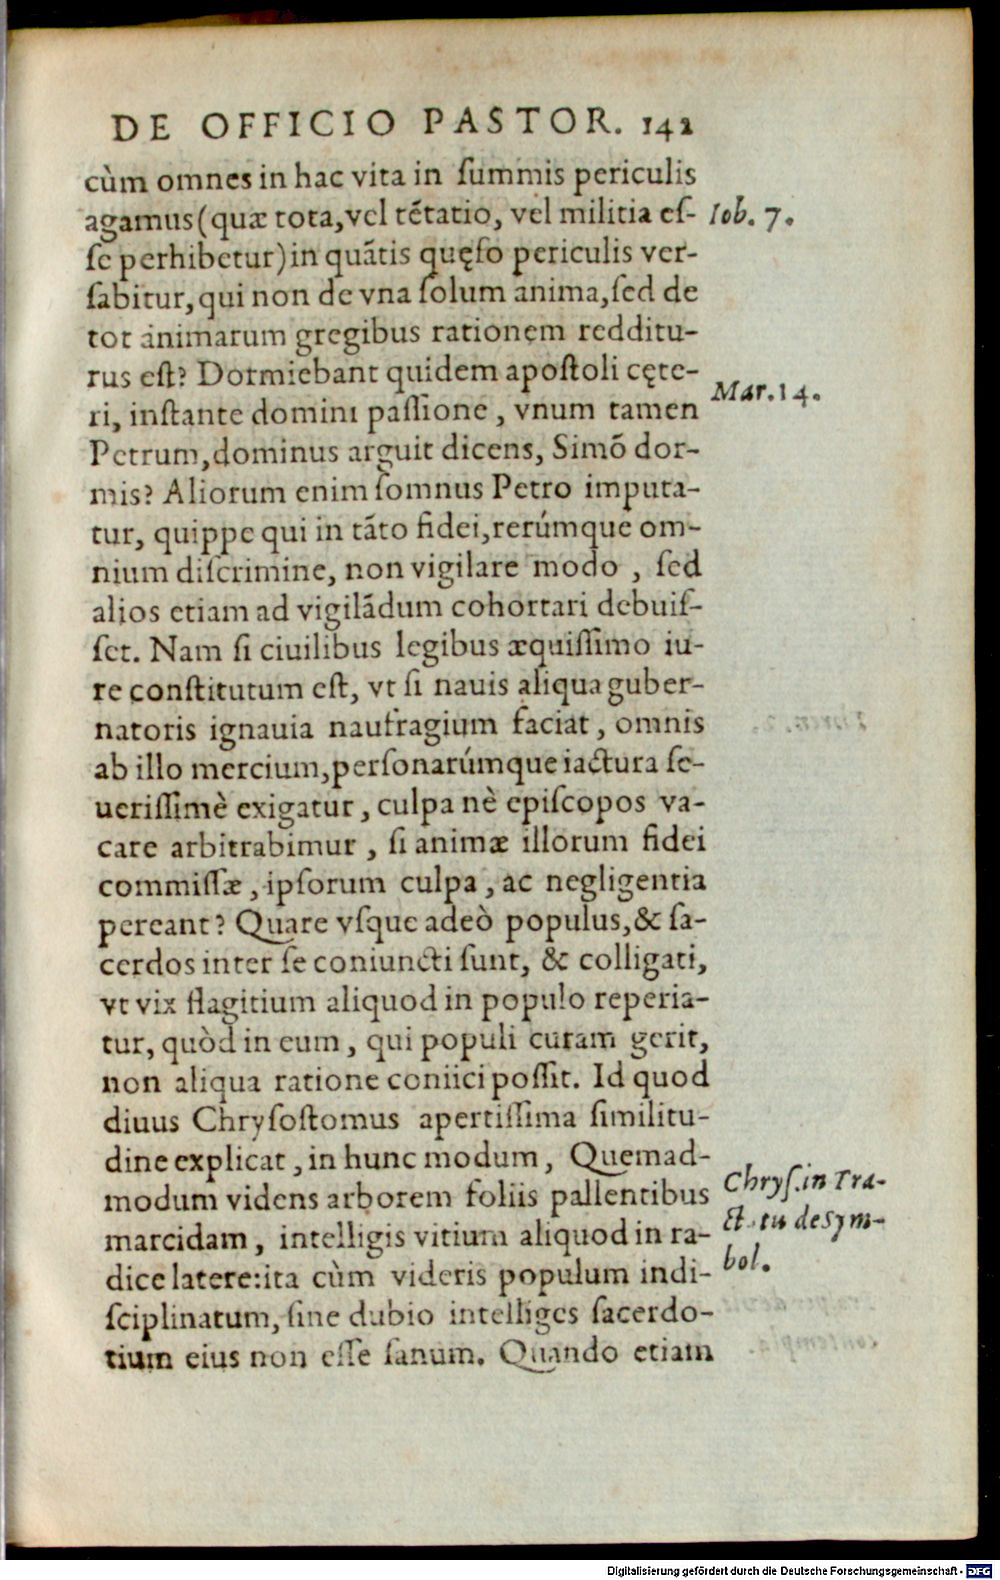 DE OFFICIO PASTOR. 142
cùm omnes in hac vita in ſummis periculis
agamus (quæ tota, vel tẽtatio, vel militia eſ-
Iob. 7.
ſe perhibetur) in quãtis quęſo periculis ver-
ſabitur, qui non de vna ſolum anima, ſed de
tot animarum gregibus rationem redditu-
rus eſt? Dormiebant quidem apoſtoli cęte-
Mar. 14.
ri, inſtante domini paſſione, vnum tamen
Petrum, dominus arguit dicens, Simõ dor-
mis? Aliorum enim ſomnus Petro imputa-
tur, quippe qui in tãto fidei, rerúmque om-
nium diſcrimine, non vigilare modo, ſed
alios etiam ad vigilãdum cohortari debuiſ-
ſet. Nam ſi ciuilibus legibus æquiſſimo iu-
re conſtitutum eſt, vt ſi nauis aliqua guber-
natoris ignauia naufragium faciat, omnis
ab illo mercium, perſonarúmque iactura ſe-
ueriſſimè exigatur, culpa nè epiſcopos va-
care arbitrabimur, ſi animæ illorum fidei
commiſſæ, ipſorum culpa, ac negligentia
pereant? Quare vſque adeò populus, & ſa-
cerdos inter ſe coniuncti ſunt, & colligati,
vt vix flagitium aliquod in populo reperia-
tur, quòd in eum, qui populi curam gerit,
non aliqua ratione coniici poſſit. Id quod
diuus Chryſoſtomus apertiſſima ſimilitu-
dine explicat, in hunc modum, Quemad-
modum videns arborem foliis pallentibus
Chryſ. in Tra-
marcidam, intelligis vitium aliquod in ra-
ct. tu de Sym-
dice latere: ita cùm videris populum indi-
bol.
ſciplinatum, ſine dubio intelliges ſacerdo-
tium eius non eſſe ſanum. Quando etiam
Digitalisierung gefördert durch die Deutsche Forschungsgemeinschaft - DFG